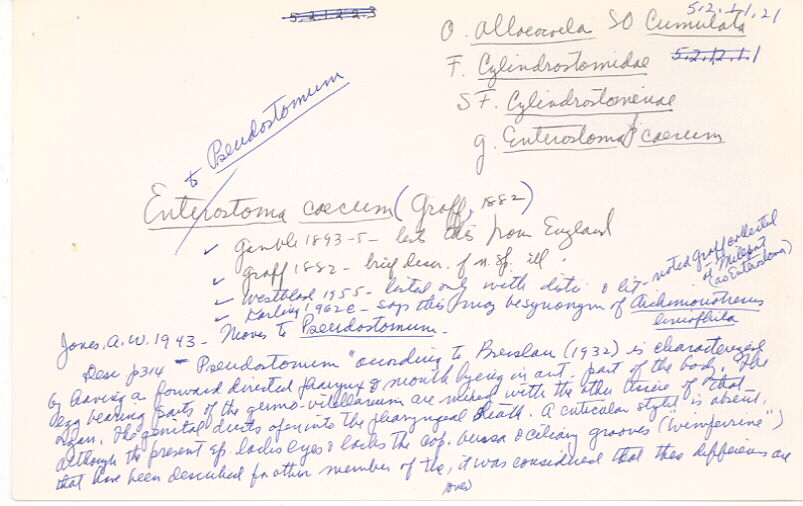 5.2.1.2.2.3
5.2.1.1.21
O. Alloeocoela SO Cumulata
F. Cylindrostomidae 5.2.12.1.1
SF. Cylindrostominae
g. Enterostoma caecum
to Pseudostomum
Enterostoma caecum (Graff, 1882)
✓ Gamble 1893-5 - lists this from England
✓ Graff 1882 - brief descr. of n. sp. Ill.
✓ Westblad 1955 - listed only with distr. & lit - noted Graff collected at Millport (as Enterostoma)
✓ Karling 1962e - says this may be synonym of Archimonotresis limophila
Jones, A.W. 1943 - Moves to Pseudostomum.
Descr p314 - "Pseudostomum" according to Breslau (1932) is characterized
by having a forward directed pharynx & mouth lying in ant. part of the body. The
egg bearing parts of the germo-vitellarium are mixed with the other tissue of that
organ. The genital ducts open into the pharyngeal sheath. A cuticular stylet is absent.
Although the present sp. lacks eyes & lacks the cop. bursa & ciliary grooves ("wimperrine")
that have been described for other member of the, it was considered that these differences are